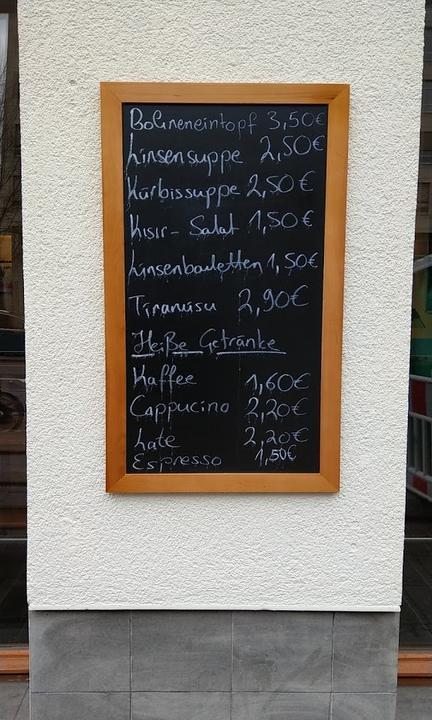 Bohneneintopf 3,50€
Linsensuppe 2,50€
Kürbissuppe 2,50€
Kısır - Salat 1,50€
Linsenbouletten 1,50€
Tiramisu 2,90€
Heiße Getränke
Kaffee 1,60€
Cappucino 2,20€
Late 2,20€
Espresso 1,50€